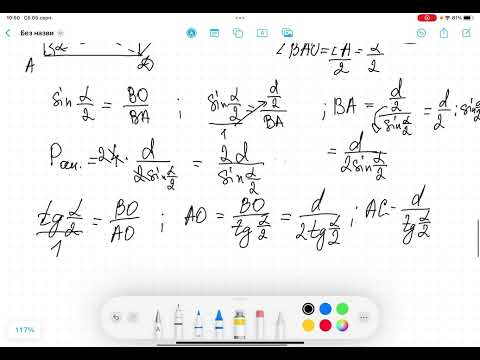 10:50 Сб 05 серп.
81%
Без назви
A
∠BAO = ∠A/2 = α/2
sin α/2 = BO/BA ; sin α/2 / 1 = d/2 / BA ; BA = d/2 / sin α/2 = d/2 : sin
= d / 2sin α/2
= 2 4 · d / 2sin α/2 = 2d / sin α/2
tg α/2 / 1 = BO/AO ; AO = BO / tg α/2 = d / 2tg α/2 ; AC = d / tg α/2
117%